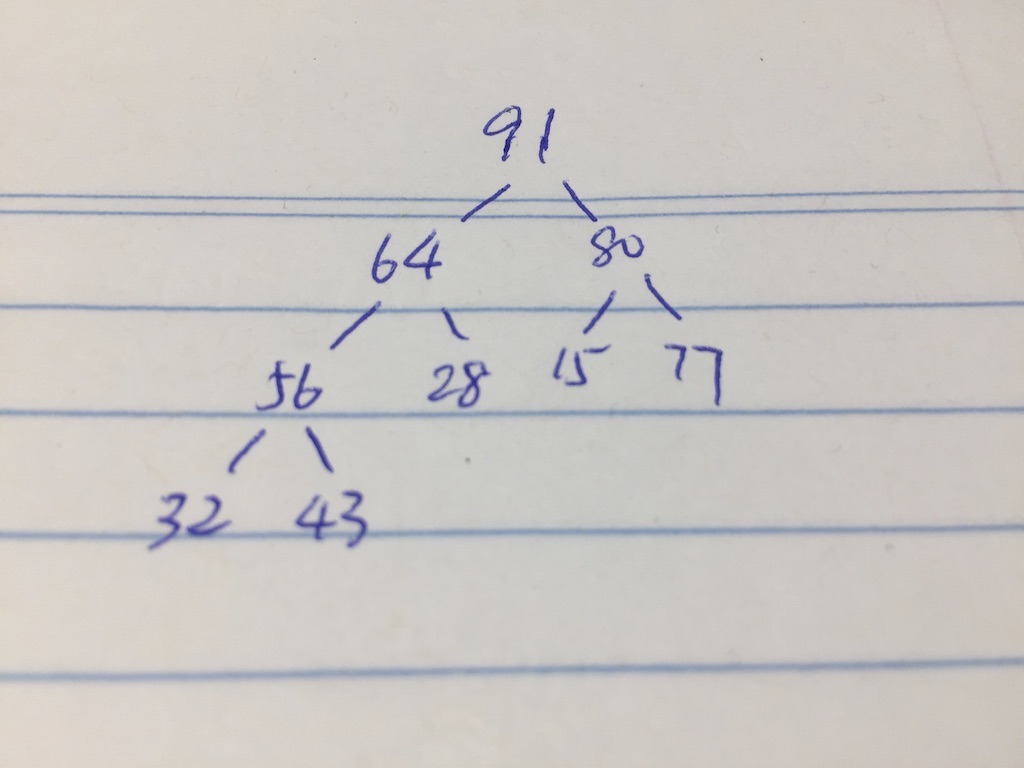 91
64 80
56 28 15 77
32 43